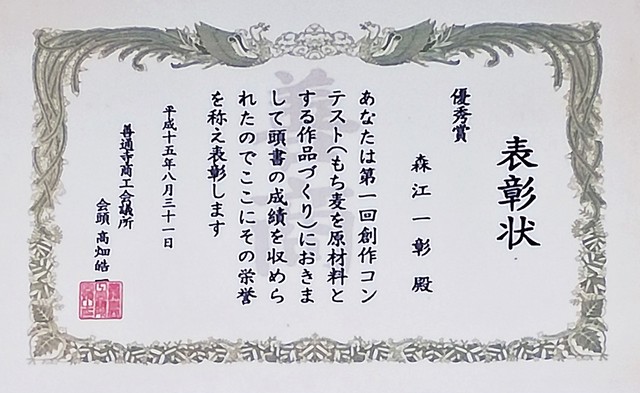 表彰状
優秀賞
森江一彰 殿
あなたは第一回創作コン
テスト(もち麦を原材料と
する作品づくり)におきま
して頭書の成績を収めら
れたのでここにその栄誉
を称え表彰します
平成十五年八月三十一日
善通寺商工会議所
会頭 高畑皓一
善商